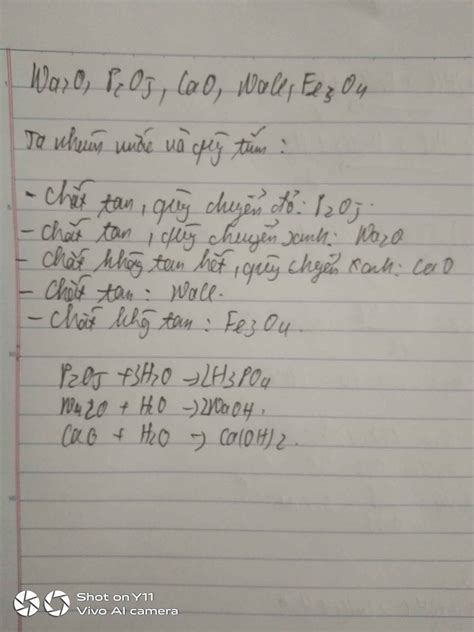 Na2O, P2O5, CaO, NaCl, Fe3O4
Ta nhúng nước và quỳ tím:
- Chất tan, quỳ chuyển đỏ: P2O5.
- Chất tan, quỳ chuyển xanh: Na2O
- Chất không tan hết, quỳ chuyển xanh: CaO
- Chất tan: NaCl.
- Chất không tan: Fe3O4.
P2O5 + 3H2O → 2H3PO4
Na2O + H2O → 2NaOH.
CaO + H2O → Ca(OH)2.
Shot on Y11
Vivo AI camera